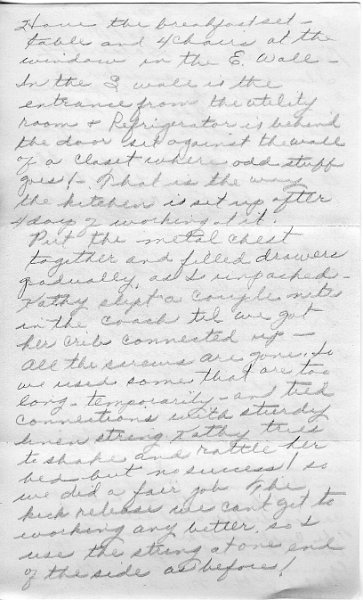 Have the breakfast set -
table and 4 chairs at the
window in the E. Wall -
In the S wall is the
entrance from the utility
room & Refrigerator is behind
the door set against the wall
of a closet where odd stuff
goes! - That is the way
the kitchen is set up after
4 days of working at it.
Put the metal chest
together and filled drawers
gradually, as I unpacked -
Kathy slept a couple nites
in the coach til we got
her crib connected up -
All the screws are gone. So
we used some that are too
long - temporarily - and tied
connections with sturdy
linen string Kathy tries
to shake and rattle her
bed - but no success! so
we did a fair job The
kick release we can't get to
working any better, so I
use the string at one end
of the side as before!